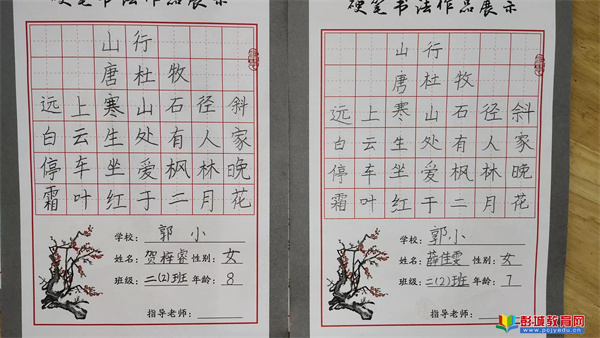 硬笔书法作品展示
山行
唐杜牧
远上寒山石径斜
白云生处有人家
停车坐爱枫林晚
霜叶红于二月花
学校：郭小
姓名：贺梓睿 性别：女
班级：二(2)班 年龄：8
指导老师：
硬笔书法作品展示
山行
唐杜牧
远上寒山石径斜
白云生处有人家
停车坐爱枫林晚
霜叶红于二月花
学校：郭小
姓名：薛佳雯 性别：女
班级：二(2)班 年龄：7
指导老师：
彭城教育网
www.pcjyedu.cn